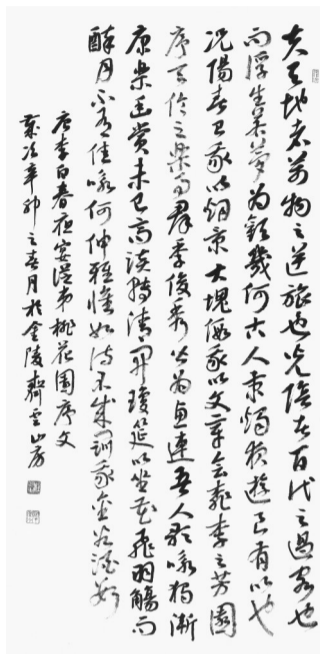 夫天地者萬物之逆旅也光陰者百代之過客也
而浮生若夢為歡幾何古人秉燭夜遊良有以也
況陽春召我以煙景大塊假我以文章會桃李之芳園
序天倫之樂事群季俊秀皆為惠連吾人歌詠獨慚
康樂幽賞未已高談轉清開瓊筵以坐花飛羽觴而
醉月不有佳詠何伸雅懷如詩不成罰依金谷酒數
唐李白春夜宴從弟桃花園序文
歲次辛卯之春月於金陵齊雲山房